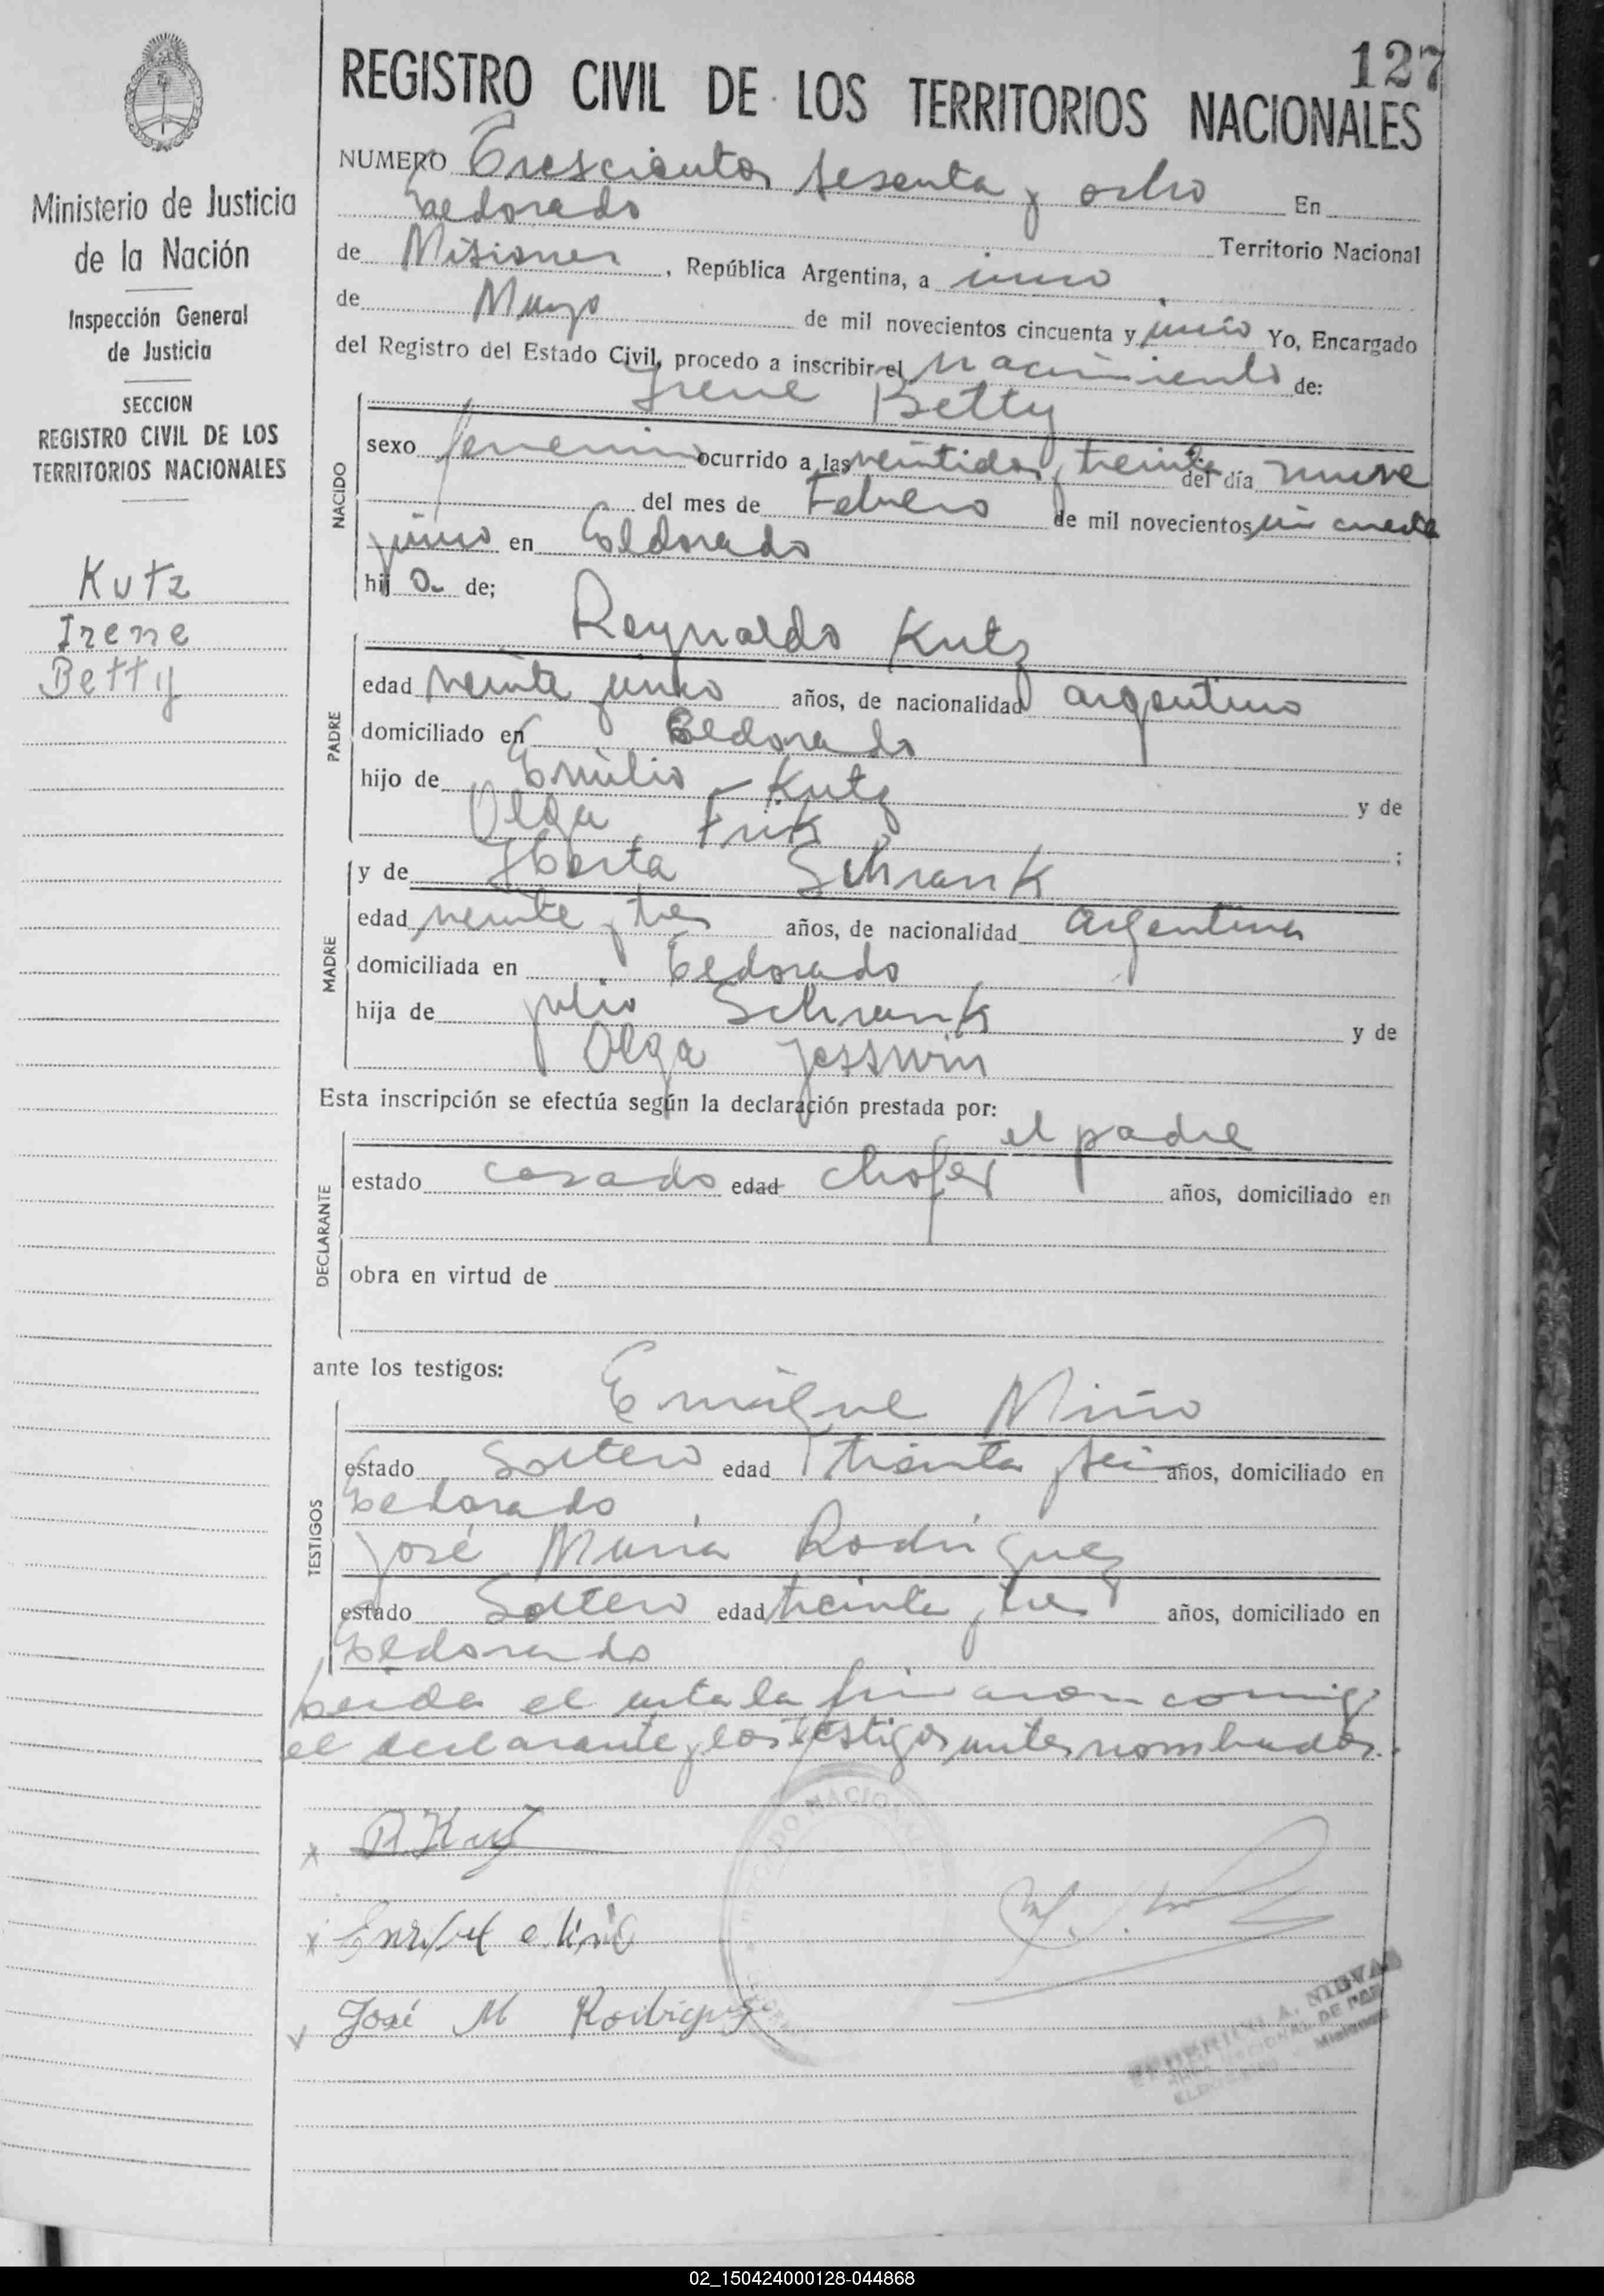 127
REGISTRO CIVIL DE LOS TERRITORIOS NACIONALES
Ministerio de Justicia
de la Nación
Inspección General
de Justicia
SECCION
REGISTRO CIVIL DE LOS
TERRITORIOS NACIONALES
Kutz
Irene
Betty
NUMERO Trescientos sesenta y ocho En
Eldorado Territorio Nacional
de Misiones, República Argentina, a uno
de Mayo de mil novecientos cincuenta y uno Yo, Encargado
del Registro del Estado Civil, procedo a inscribir el nacimiento de:
Irene Betty
NACIDO
sexo femenino ocurrido a las veintidos y treinta del día nueve
del mes de Febrero de mil novecientos cincuenta
y uno en Eldorado
hij a de;
Reynaldo Kutz
PADRE
edad veinte y cinco años, de nacionalidad argentino
domiciliado en Eldorado
hijo de Emilio Kutz y de
Olga Frik ;
MADRE
y de Schrank
edad veinte y tres años, de nacionalidad argentina
domiciliada en Eldorado
hija de Julio Schrank y de
Olga Jesswin
Esta inscripción se efectúa según la declaración prestada por:
el padre
DECLARANTE
estado casado edad chofer años, domiciliado en
obra en virtud de
ante los testigos:
Enrique Miño
TESTIGOS
estado Soltero edad treinta y seis años, domiciliado en
Eldorado
José María Rodriguez
estado Soltero edad treinta y tres años, domiciliado en
Eldorado
Leida el acta la firmaron conmigo
el declarante y los testigos antes nombrados.
R. Kutz
José M Rodriguez
02_150424000128-044868